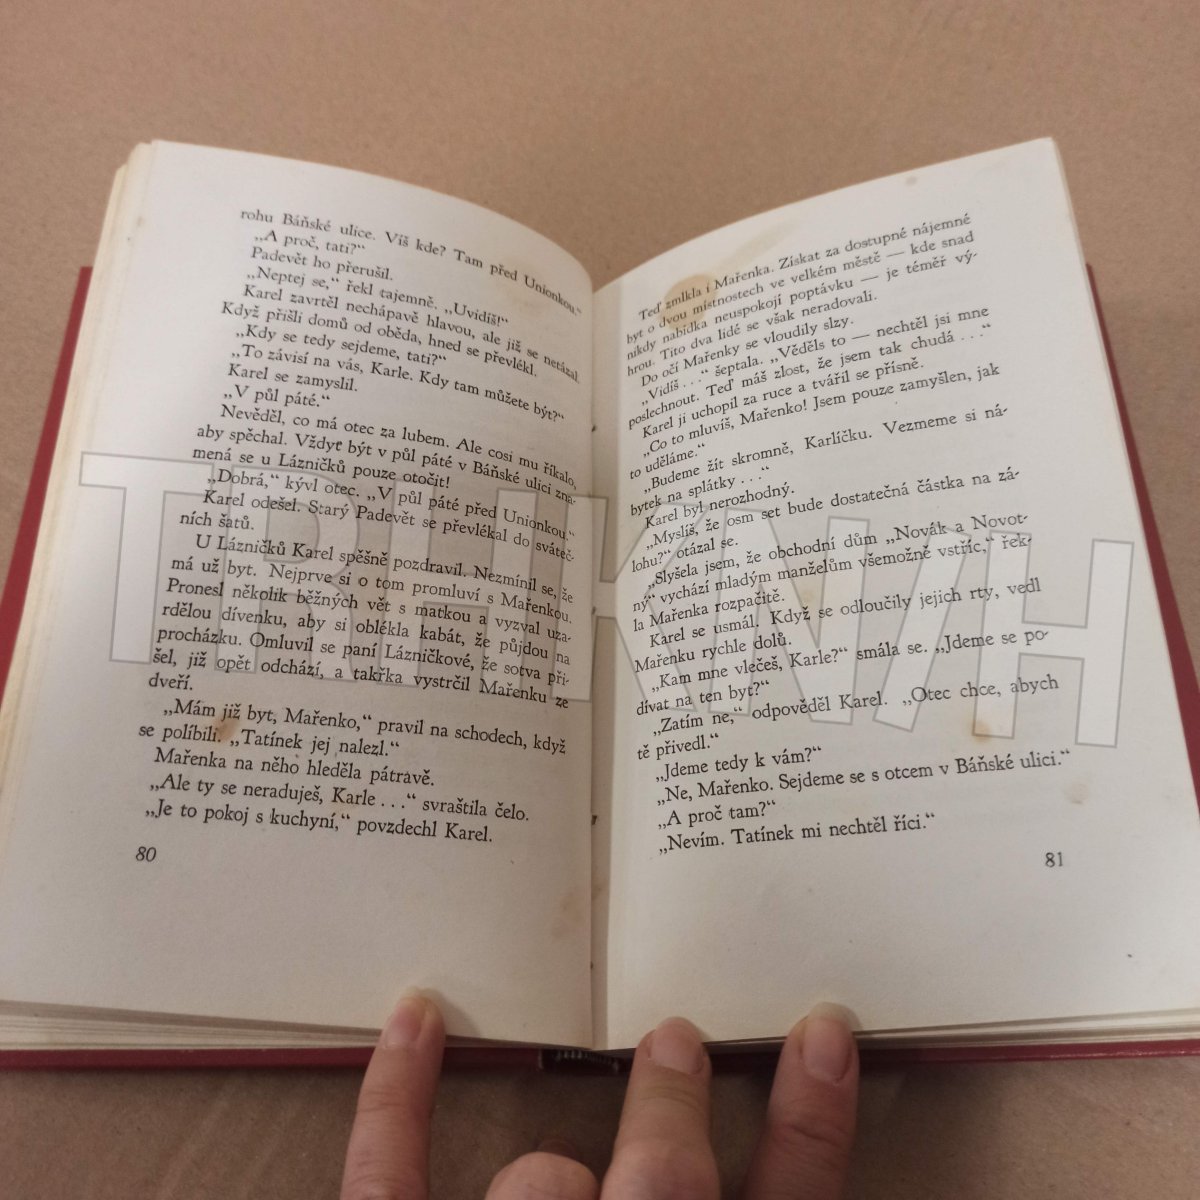 rohu Báňské ulice. Víš kde? Tam před Unionkou.“
„A proč, tati?“
Padevět ho přerušil.
„Neptej se,“ řekl tajemně. „Uvidíš!“
Karel zavrtěl nechápavě hlavou, ale již se netázal.
Když přišli domů od oběda, hned se převlékl.
„Kdy se tedy sejdeme, tati?“
„To závisí na vás, Karle. Kdy tam můžete být?“
Karel se zamyslil.
„V půl páté.“
Nevěděl, co má otec za lubem. Ale cosi mu říkalo,
aby spěchal. Vždyť být v půl páté v Báňské ulici zna-
mená se u Lázničků pouze otočit!
„Dobrá,“ kývl otec. „V půl páté před Unionkou.“
Karel odešel. Starý Padevět se převlékal do sváteč-
ních šatů.
U Lázničků Karel spěšně pozdravil. Nezmínil se, že
má už byt. Nejprve si o tom promluví s Mařenkou.
Pronesl několik běžných vět s matkou a vyzval uza-
rdělou dívenku, aby si oblékla kabát, že půjdou na
procházku. Omluvil se paní Lázničkové, že sotva při-
šel, již opět odchází, a takřka vystrčil Mařenku ze
dveří.
„Mám již byt, Mařenko,“ pravil na schodech, když
se políbili. „Tatínek jej nalezl.“
Mařenka na něho hleděla pátravě.
„Ale ty se neraduješ, Karle . . .“ svraštila čelo.
„Je to pokoj s kuchyní,“ povzdechl Karel.
80
Teď zmlkla i Mařenka. Získat za dostupné nájemné
byt o dvou místnostech ve velkém městě — kde snad
nikdy nabídka neuspokojí poptávku — je téměř vý-
hrou. Tito dva lidé se však neradovali.
Do očí Mařenky se vloudily slzy.
„Vidíš . . .“ šeptala. „Věděls to — nechtěl jsi mne
poslechnout. Teď máš zlost, že jsem tak chudá . . .“
Karel ji uchopil za ruce a tvářil se přísně.
„Co to mluvíš, Mařenko! Jsem pouze zamyšlen, jak
to uděláme.“
„Budeme žít skromně, Karlíčku. Vezmeme si ná-
bytek na splátky . . .“
Karel byl nerozhodný.
„Myslíš, že osm set bude dostatečná částka na zá-
lohu?“ otázal se.
„Slyšela jsem, že obchodní dům „Novák a Novot-
ný“ vychází mladým manželům všemožně vstříc,“ řek-
la Mařenka rozpačitě.
Karel se usmál. Když se odloučily jejich rty, vedl
Mařenku rychle dolů.
„Kam mne vlečeš, Karle?“ smála se. „Jdeme se po-
dívat na ten byt?“
„Zatím ne,“ odpověděl Karel. „Otec chce, abych
tě přivedl.“
„Jdeme tedy k vám?“
„Ne, Mařenko. Sejdeme se s otcem v Báňské ulici.“
„A proč tam?“
„Nevím. Tatínek mi nechtěl říci.“
81
TRHKNIH